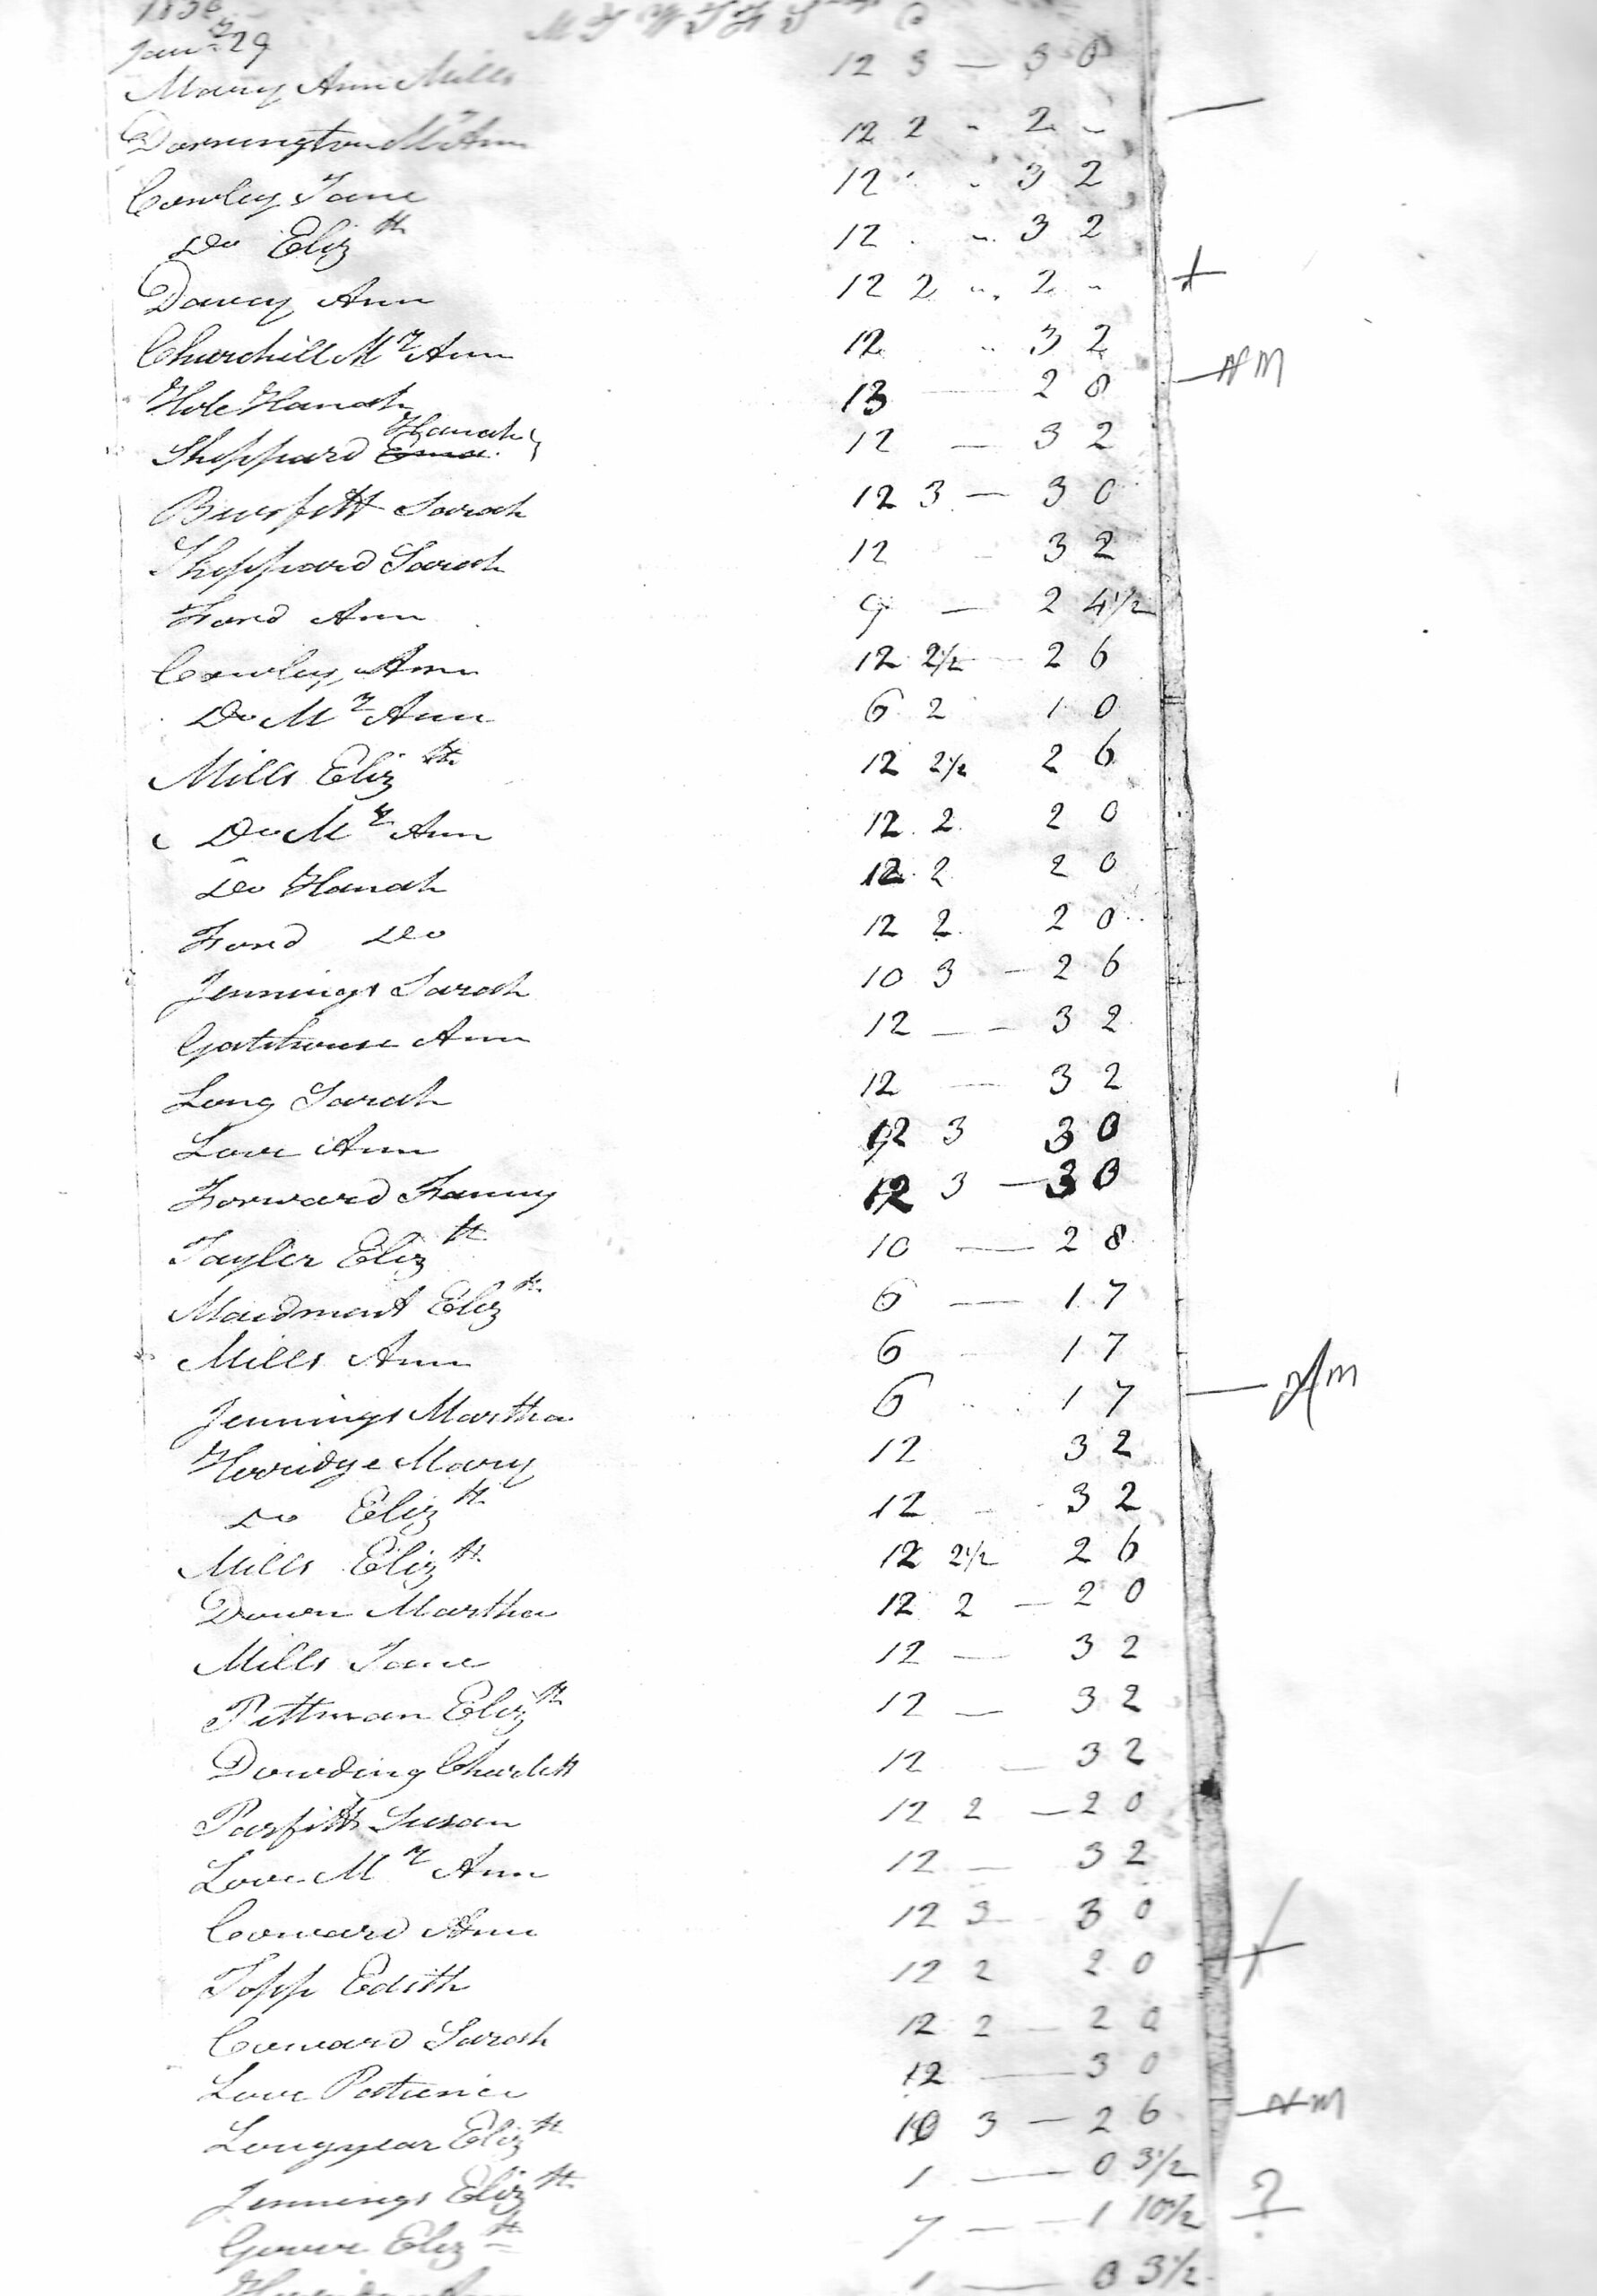 1836
Jany 29 M T W T F S
Mary Ann Mills 12 3 — 3 0
Dorrington My Ann 12 2 " 2 "
Cowley Jane 12 " " 3 2
Do Elizth 12 . " 3 2
Davey Ann 12 2 " 2 "
Churchill My Ann 12 " 3 2
Hole Hanah 13 — 2 8
Sheppard Hanah 12 — 3 2
Burfitt Sarah 12 3 — 3 0
Sheppard Sarah 12 - 3 2
Ford Ann 9 — 2 4½
Cowley Ann 12 2½ — 2 6
Do My Ann 6 2 1 0
Mills Elizth 12 2½ 2 6
Do My Ann 12 2 2 0
Do Hanah 12 2 2 0
Ford Do 12 2 2 0
Jennings Sarah 10 3 — 2 6
Gatehouse Ann 12 — 3 2
Long Sarah 12 — 3 2
Love Ann 12 3 3 0
Forward Fanny 12 3 — 3 0
Tayler Elizth 10 — 2 8
Maidment Elizth 6 — 1 7
Mills Ann 6 1 7
Jennings Martha 6 1 7
Horridge Mary 12 3 2
Do Elizth 12 - 3 2
Mills Elizth 12 2½ 2 6
Down Martha 12 2 — 2 0
Mills Jane 12 — 3 2
Pittman Elizth 12 — 3 2
Dowding Charlett 12 — 3 2
Parfitt Susan 12 2 — 2 0
Love My Ann 12 — 3 2
Coward Ann 12 3 — 3 0
Topp Edith 12 2 2 0
Coward Sarah 12 2 — 2 0
Love Patience 12 — 3 0
Longyear Elizth 10 3 — 2 6
Jennings Elizth 1 — 0 3½
Elizth 7 — 1 10½ ?
Ann 1 — 0 3½